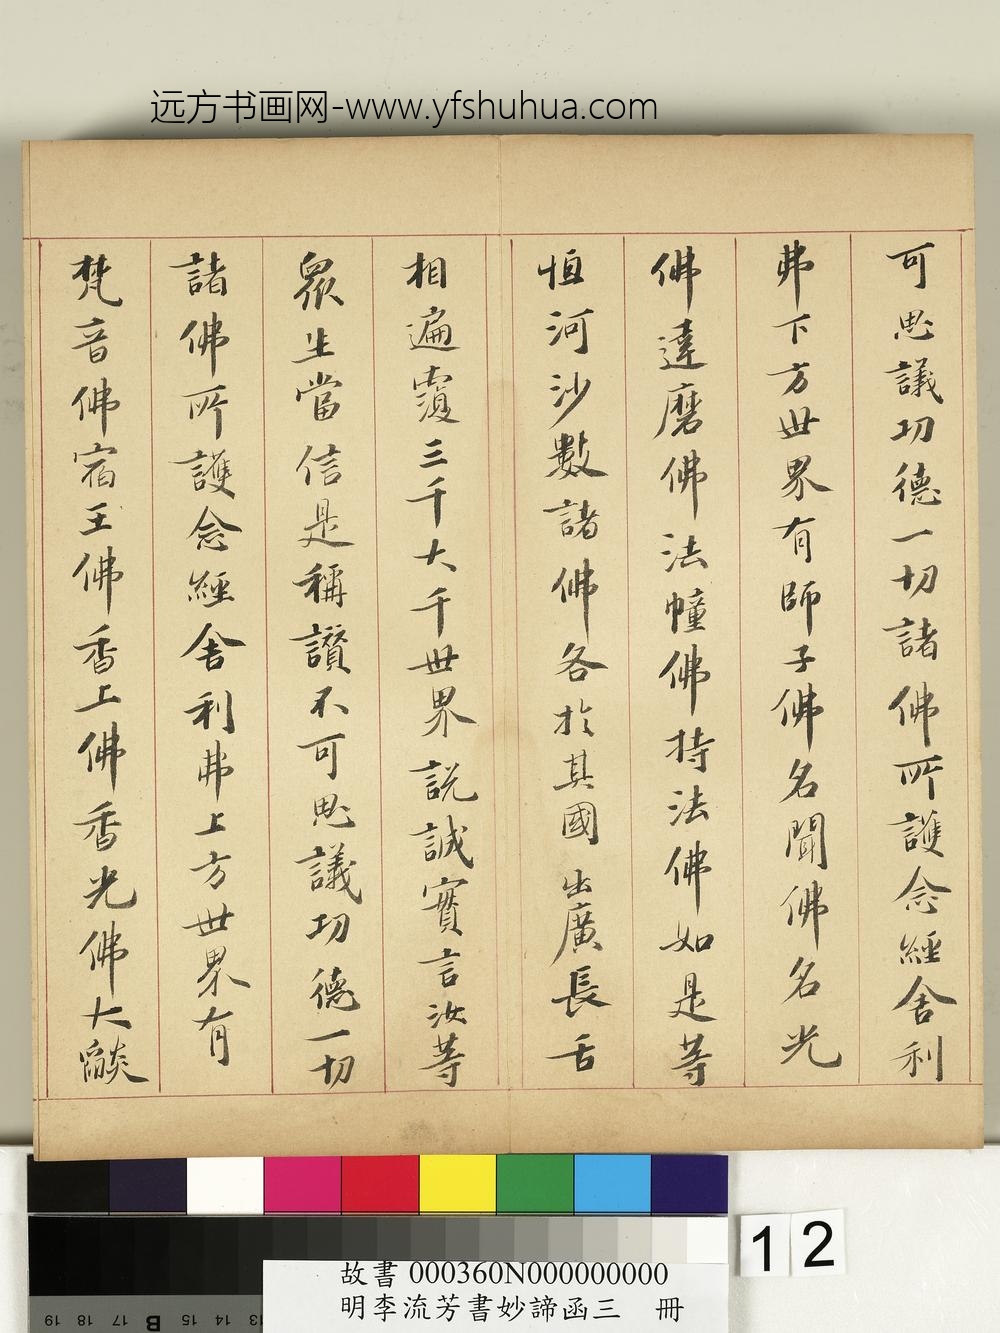 远方书画网-www.yfshuhua.com
可思議功德一切諸佛所護念經舍利
弗下方世界有師子佛名聞佛名光
佛達磨佛法幢佛持法佛如是等
恒河沙數諸佛各於其國出廣長舌
相遍覆三千大千世界說誠實言汝等
眾生當信是稱讚不可思議功德一切
諸佛所護念經舍利弗上方世界有
梵音佛宿王佛香上佛香光佛大燄
12
故書 000360N000000000
明李流芳書妙諦函三 冊
19 18 17 B 15 14 13